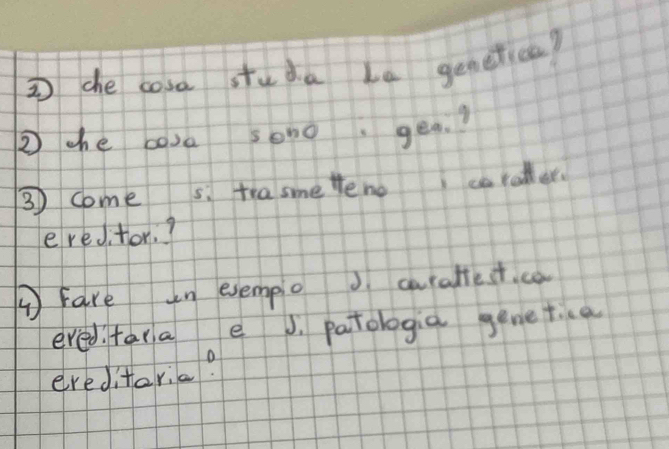 1) che cosa studia la genetica?
2) che cosa sono i geni?
3) come si trasmetteno i caratteri
ereditori?
4) Fare un esempio di carattestica
ereditaria e di patologia genetica
ereditaria?